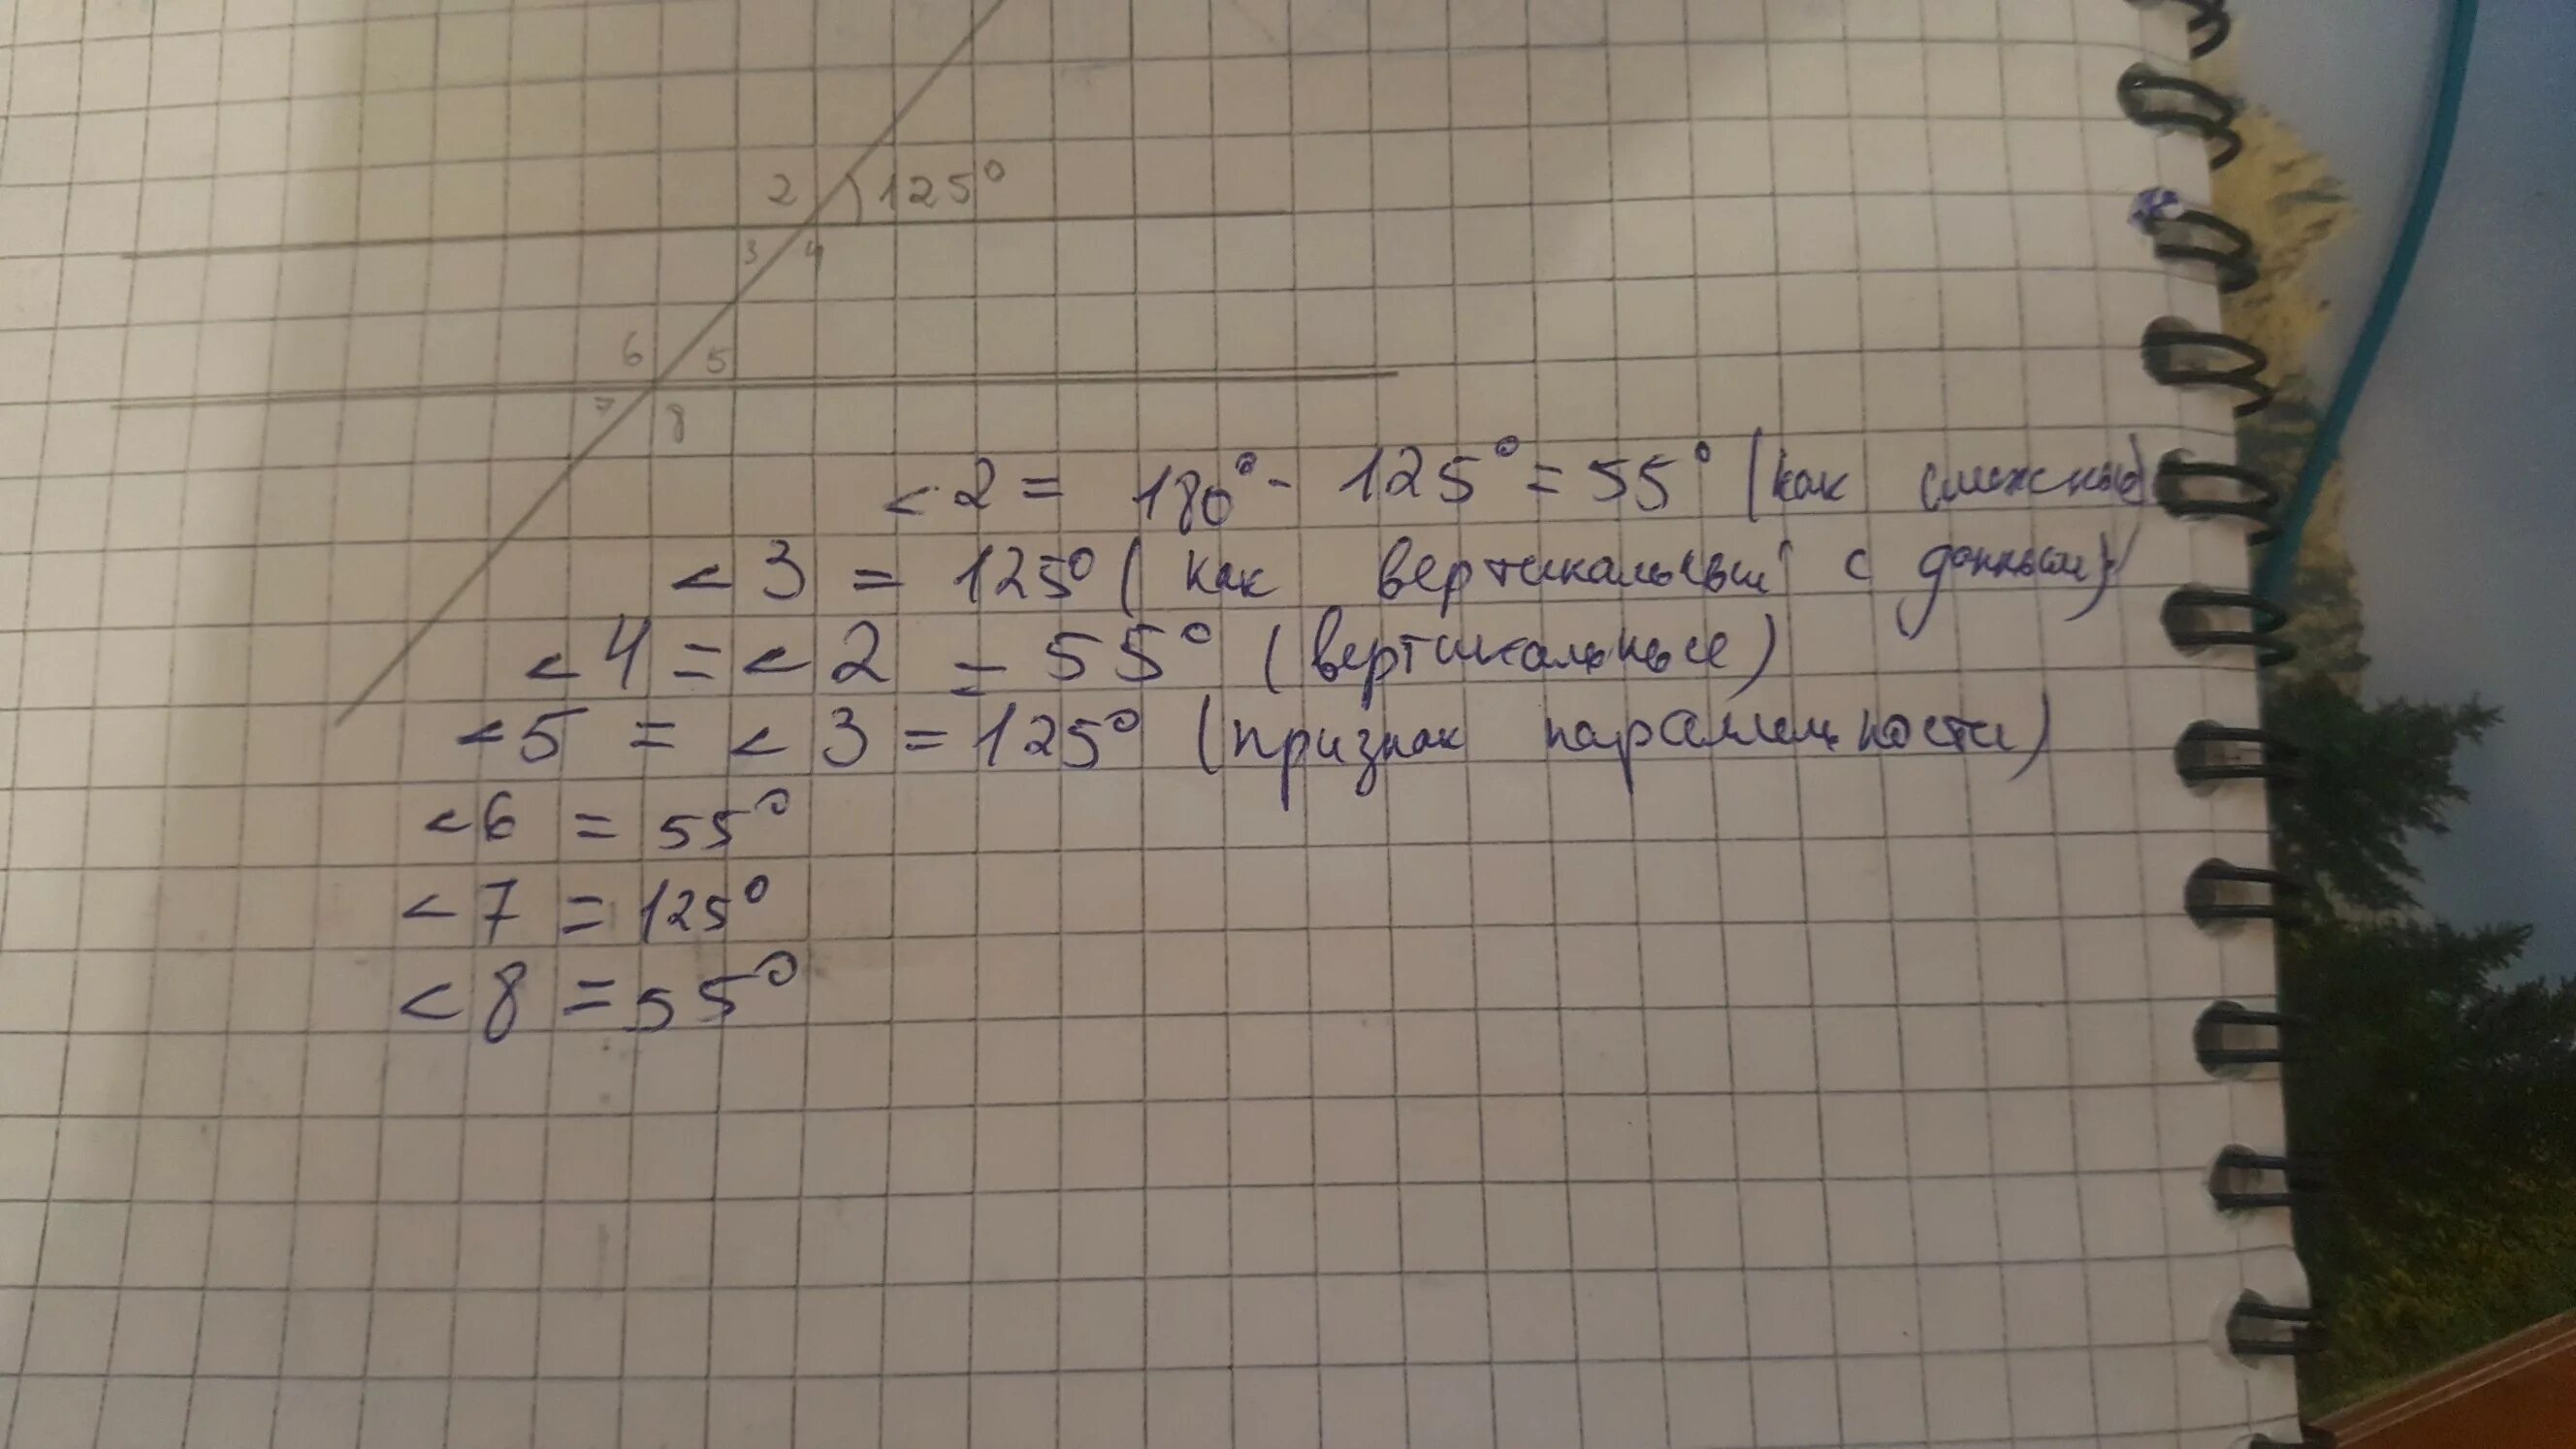 2 125°
3 4
6 5
7 8
<2 = 180° - 125° = 55° (как смежный)
<3 = 125° (как вертикальный с данным)
<4 = <2 = 55° (вертикальные)
<5 = <3 = 125° (признак
<6 = 55°
<7 = 125°
<8 = 55°